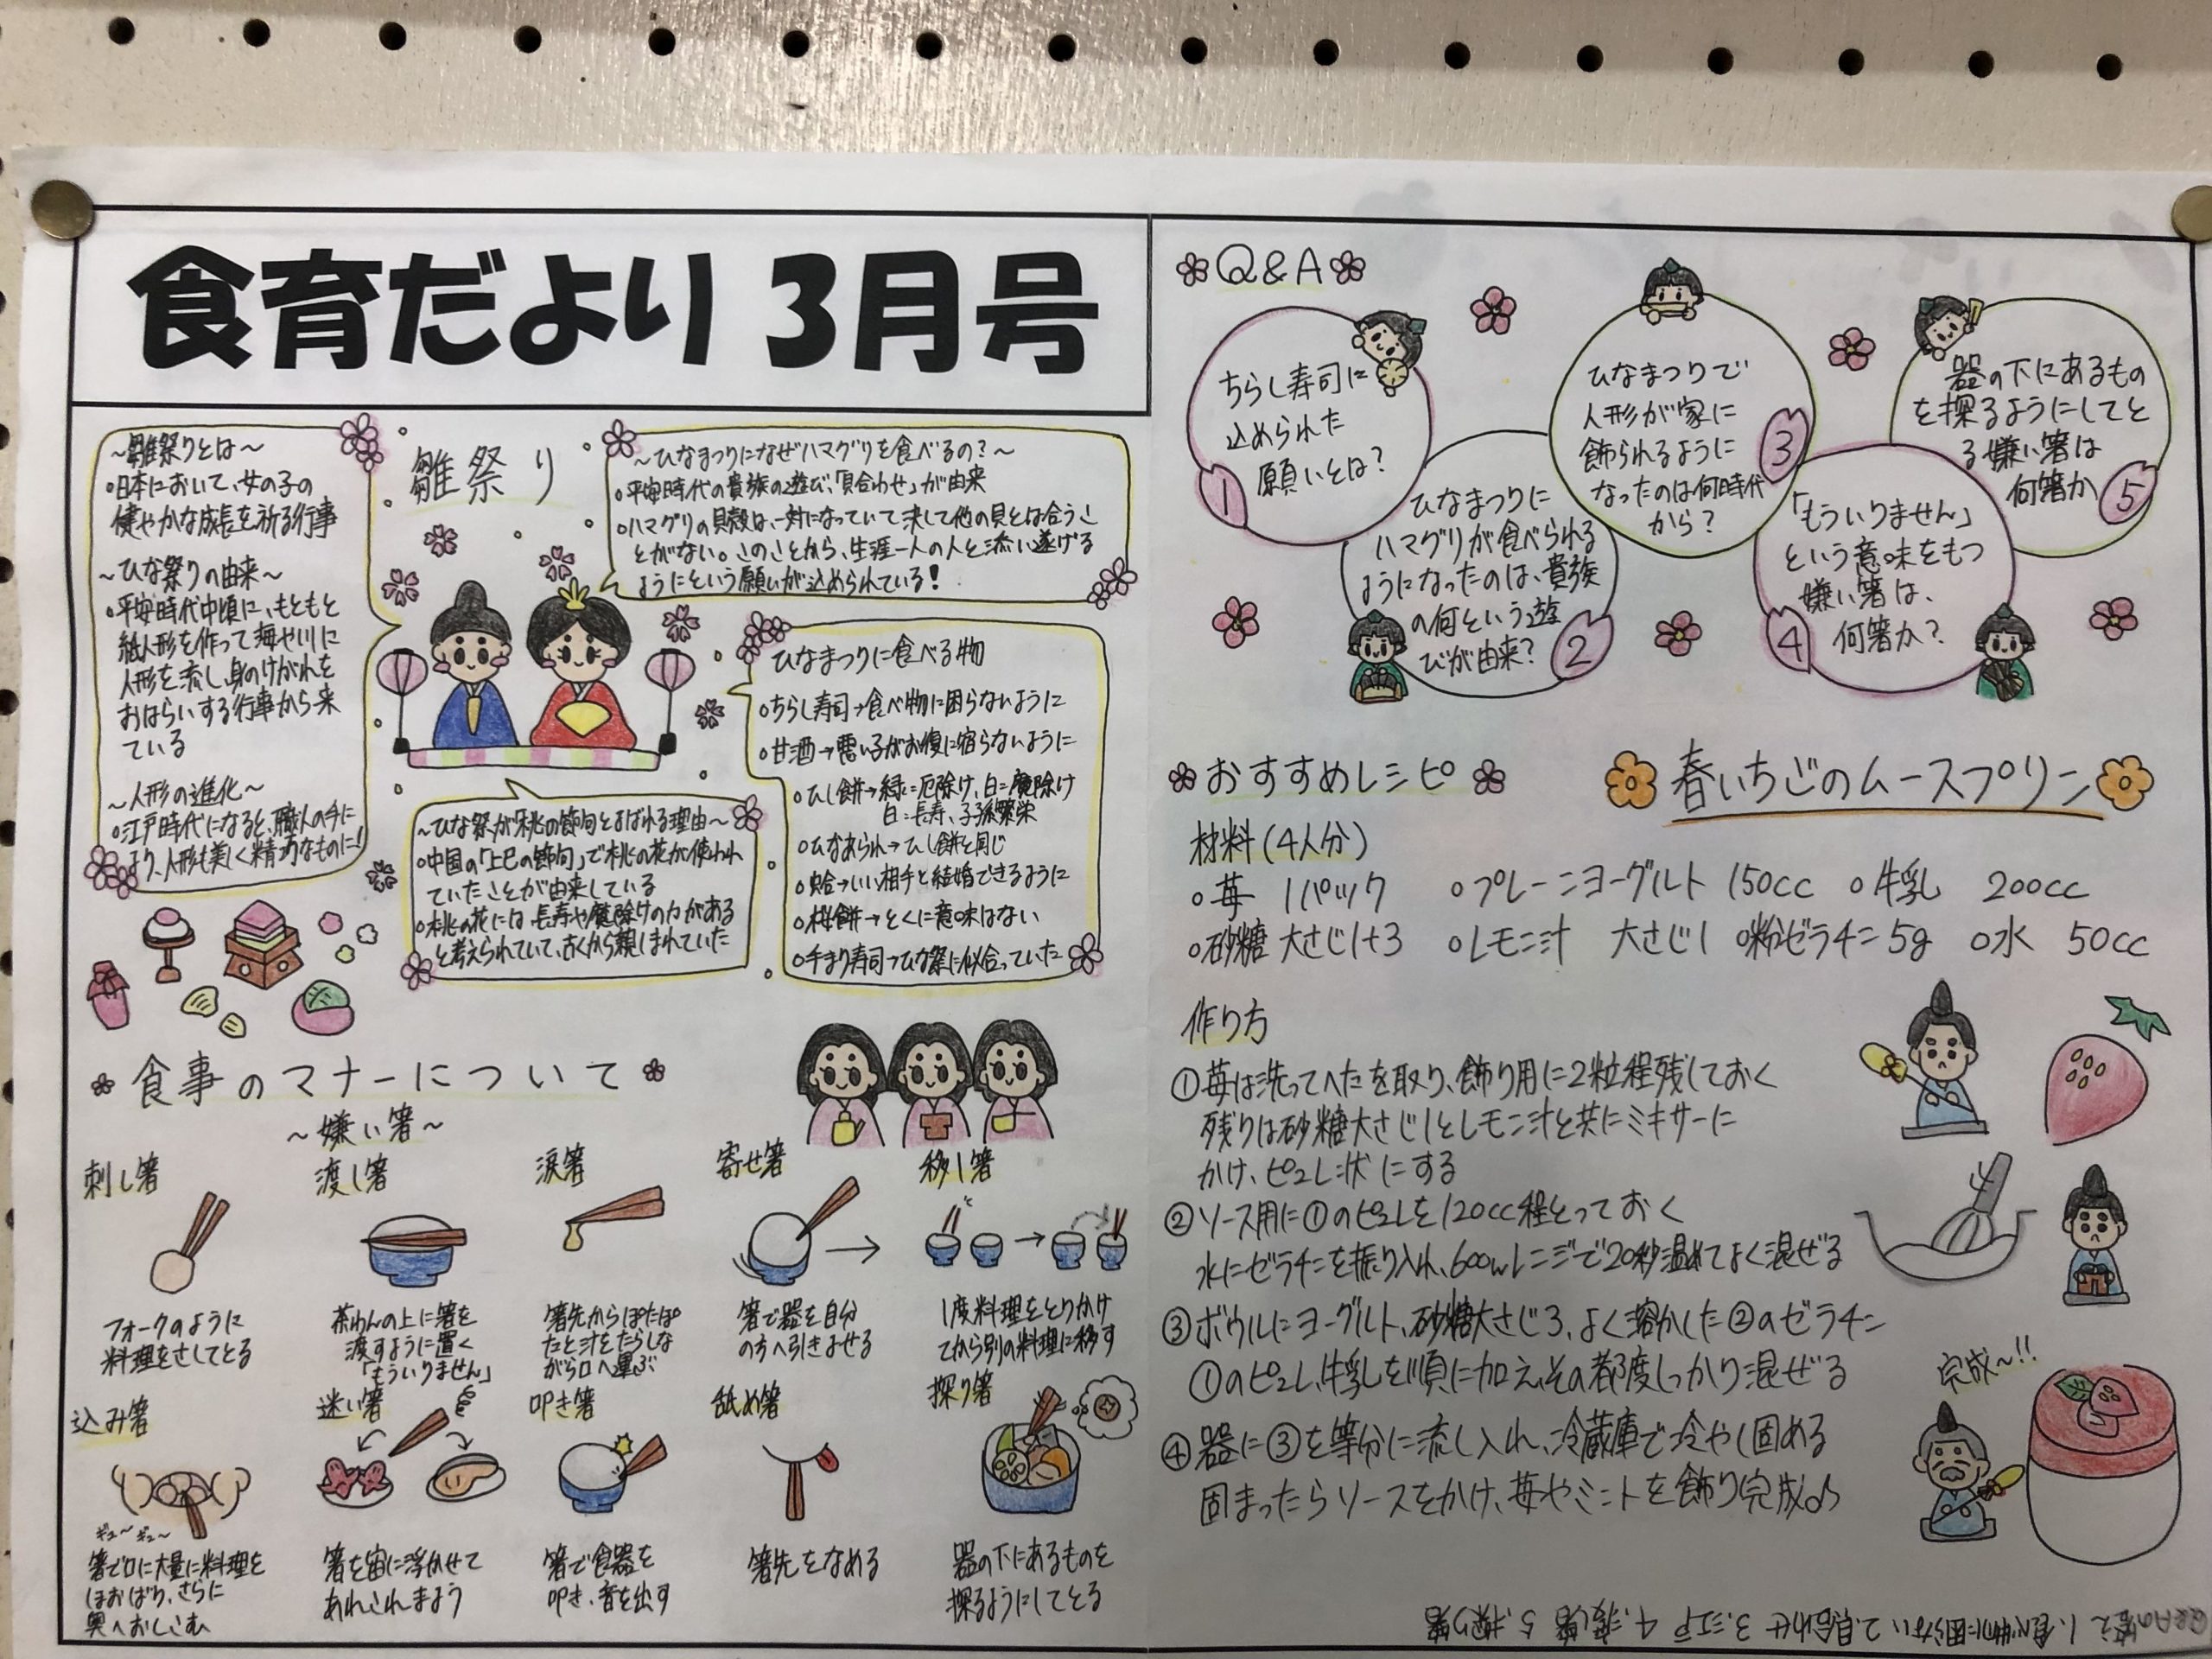 食育だより 3月号
～雛祭りとは～
○日本において、女の子の
健やかな成長を祈る行事
～ひな祭りの由来～
○平安時代中頃に、もともと
紙人形を作って海や川に
人形を流し、身のけがれを
おはらいする行事から来
ている
～人形の進化～
○江戸時代になると、職人の手に
より、人形も美しく精巧なものに！
雛祭り
～ひなまつりになぜハマグリを食べるの？～
○平安時代の貴族の遊び、「貝合わせ」が由来
○ハマグリの貝殻は、一対になっていて決して他の貝とは合うこ
とがない。このことから、生涯一人の人と添い遂げる
ようにという願いが込められている！
～ひな祭が「桃の節句」とよばれる理由～
○中国の「上巳の節句」で桃の花が使われ
ていたことが由来している
○桃の花には、長寿や魔除けの力がある
と考えられていて、古くから親しまれていた
ひなまつりに食べる物
○ちらし寿司→食べ物に困らないように
○甘酒→悪い子がお腹に宿らないように
○ひし餅→緑=厄除け、白=魔除け
白=長寿、子孫繁栄
○ひなあられ→ひし餅と同じ
○蛤→いい相手と結婚できるように
○桜餅→とくに意味はない
○手まり寿司→ひな祭に似合っていた
食事のマナーについて
～嫌い箸～
刺し箸
フォークのように
料理をさしてとる
渡し箸
茶わんの上に箸を
渡すように置く
「もういりません」
涙箸
箸先からぽたぽ
たと汁をたらしな
がら口へ運ぶ
寄せ箸
箸で器を自分
の方へ引きよせる
移し箸
1度料理をとりかけ
てから別の料理に移す
込み箸
ギュ～ ギュ～
箸で口に大量に料理を
ほおばり、さらに
奥へおしこむ
迷い箸
箸を宙に浮かせて
あれこれまよう
叩き箸
箸で食器を
叩き、音を出す
舐め箸
箸先をなめる
探り箸
器の下にあるものを
探るようにしてとる
Q&A
1
ちらし寿司に
込められた
願いとは？
2
ひなまつりに
ハマグリが食べられる
ようになったのは、貴族
の何という遊
びが由来？
3
ひなまつりで
人形が家に
飾られるように
なったのは何時代
から？
4
「もういりません」
という意味をもつ
嫌い箸は、
何箸か？
5
器の下にあるもの
を探るようにしてと
る嫌い箸は
何箸か
おすすめレシピ
春いちごのムースプリン
材料（4人分）
○苺 1パック ○プレーンヨーグルト 150cc ○牛乳 200cc
○砂糖 大さじ1+3 ○レモン汁 大さじ1 ○粉ゼラチン 5g ○水 50cc
作り方
①苺は洗ってへたを取り、飾り用に2粒程残しておく
残りは砂糖大さじ1とレモン汁と共にミキサーに
かけ、ピュレ状にする
②ソース用に①のピュレを120cc程とっておく
水にゼラチンを振り入れ、600wレンジで20秒温めてよく混ぜる
③ボウルにヨーグルト、砂糖大さじ3、よく溶かした②のゼラチン
①のピュレ、牛乳を順に加え、その都度しっかり混ぜる
④器に③を等分に流し入れ、冷蔵庫で冷やし固める
固まったらソースをかけ、苺やミントを飾り完成♪
完成～!!
Q&Aの答え 1.食べ物に困らない 2.貝合わせ 3.江戸 4.渡し箸 5.探り箸